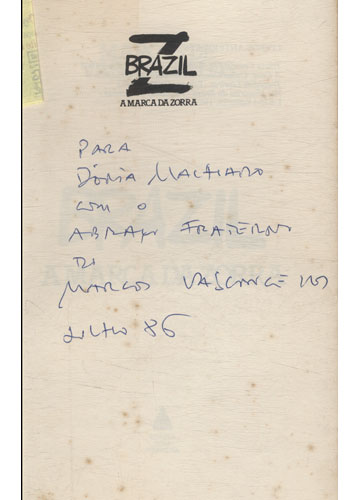 BRAZIL
A MARCA DA ZORRA
PARA
DÓRIA MACHADO
COM O
ABRAÇO FRATERNO
DI
MARCOS VASCONCELLOS
JULHO 86